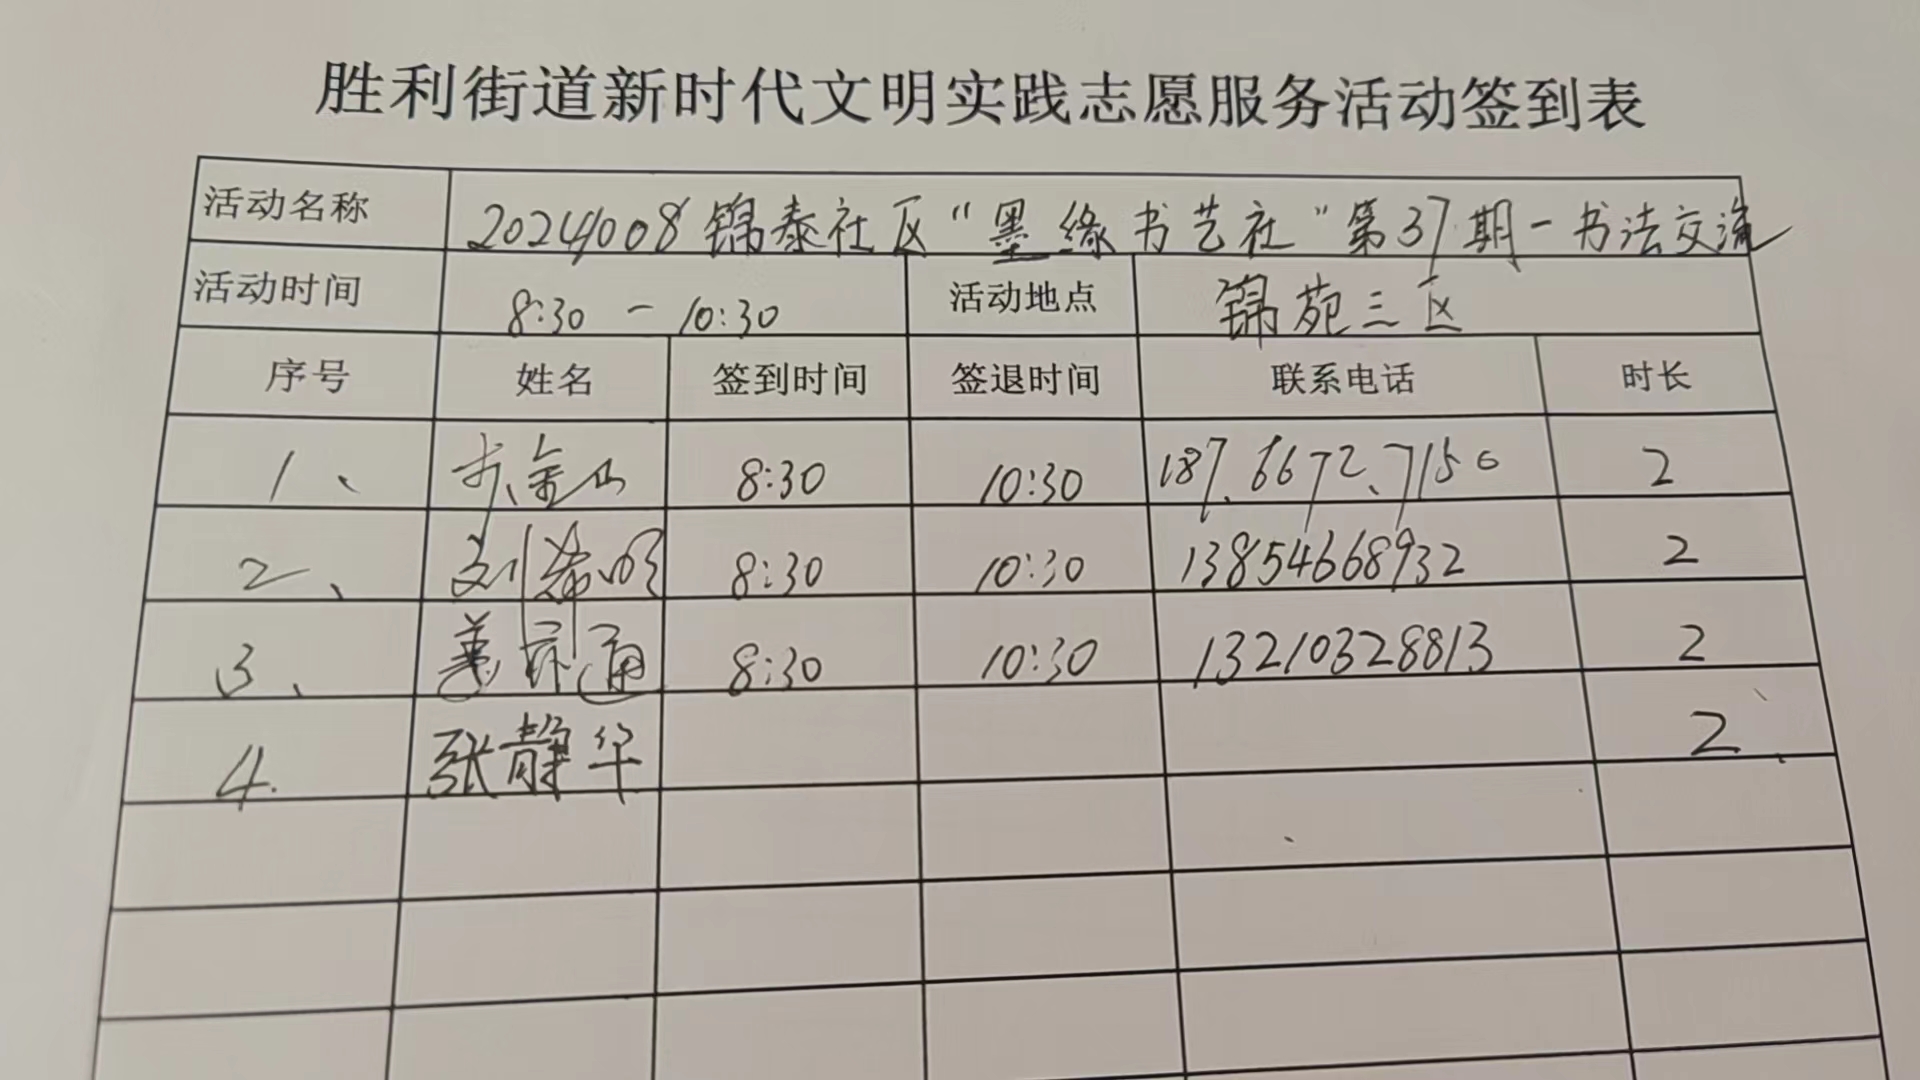 胜利街道新时代文明实践志愿服务活动签到表
活动名称 20241008锦泰社区“墨缘书艺社”第37期一书法交流
活动时间 8:30 一 10:30 活动地点 锦苑三区
序号 姓名 签到时间 签退时间 联系电话 时长
1、 金山 8:30 10:30 187.6672.7150 2
2、 刘 明 8:30 10:30 13854668932 2
3、 通 8:30 10:30 13210328813 2
4. 张静华 2